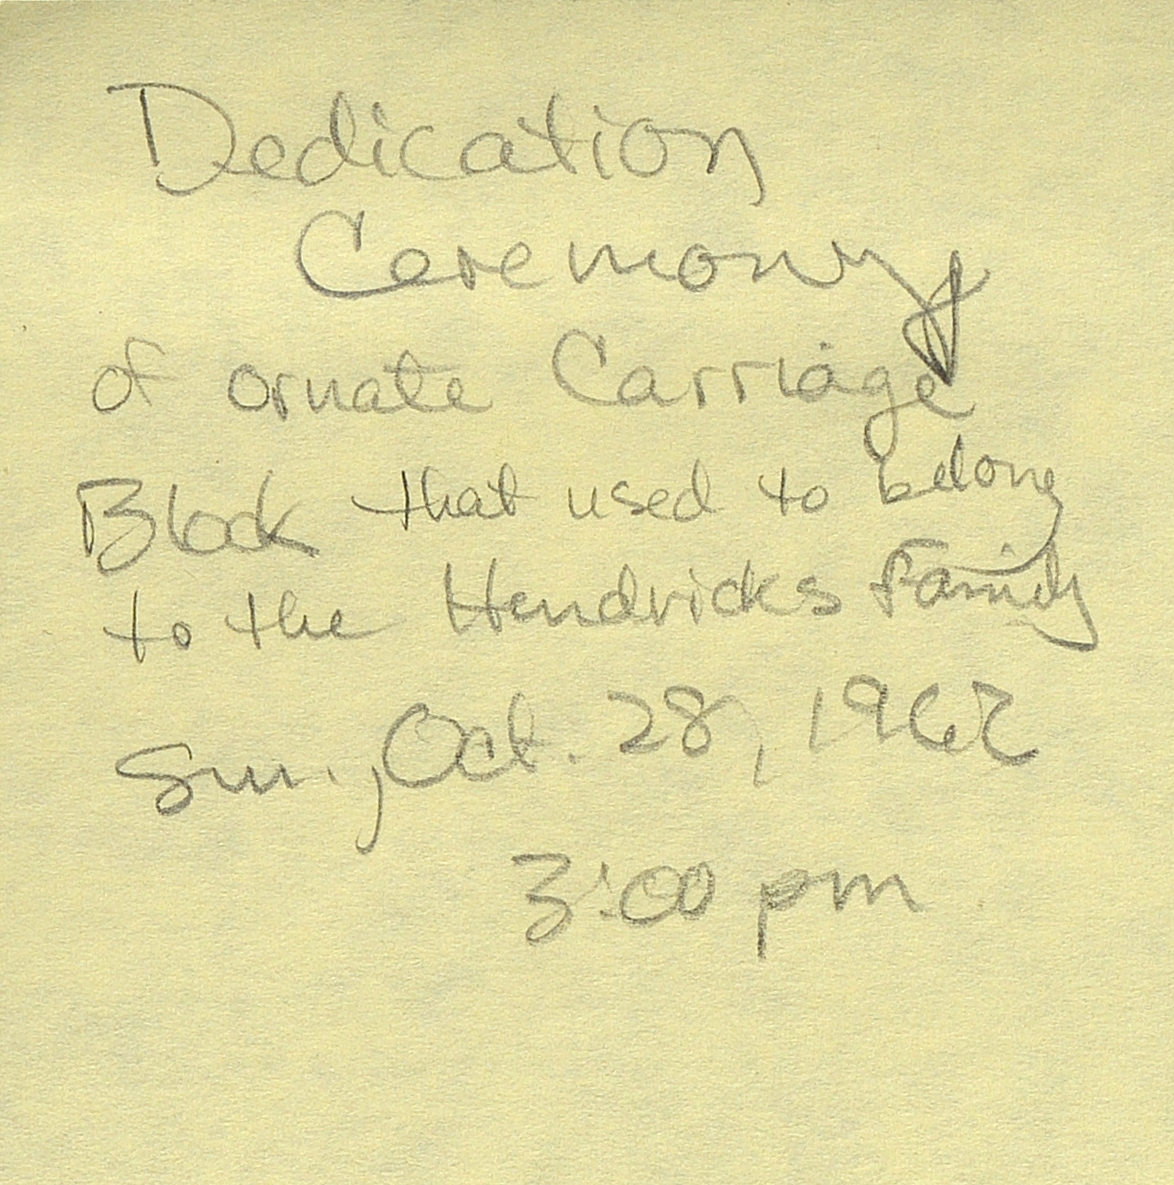 Dedication
Ceremony
of ornate Carriage
Block that used to belong
to the Hendricks Family
Sun., Oct. 28, 1962
3:00 pm